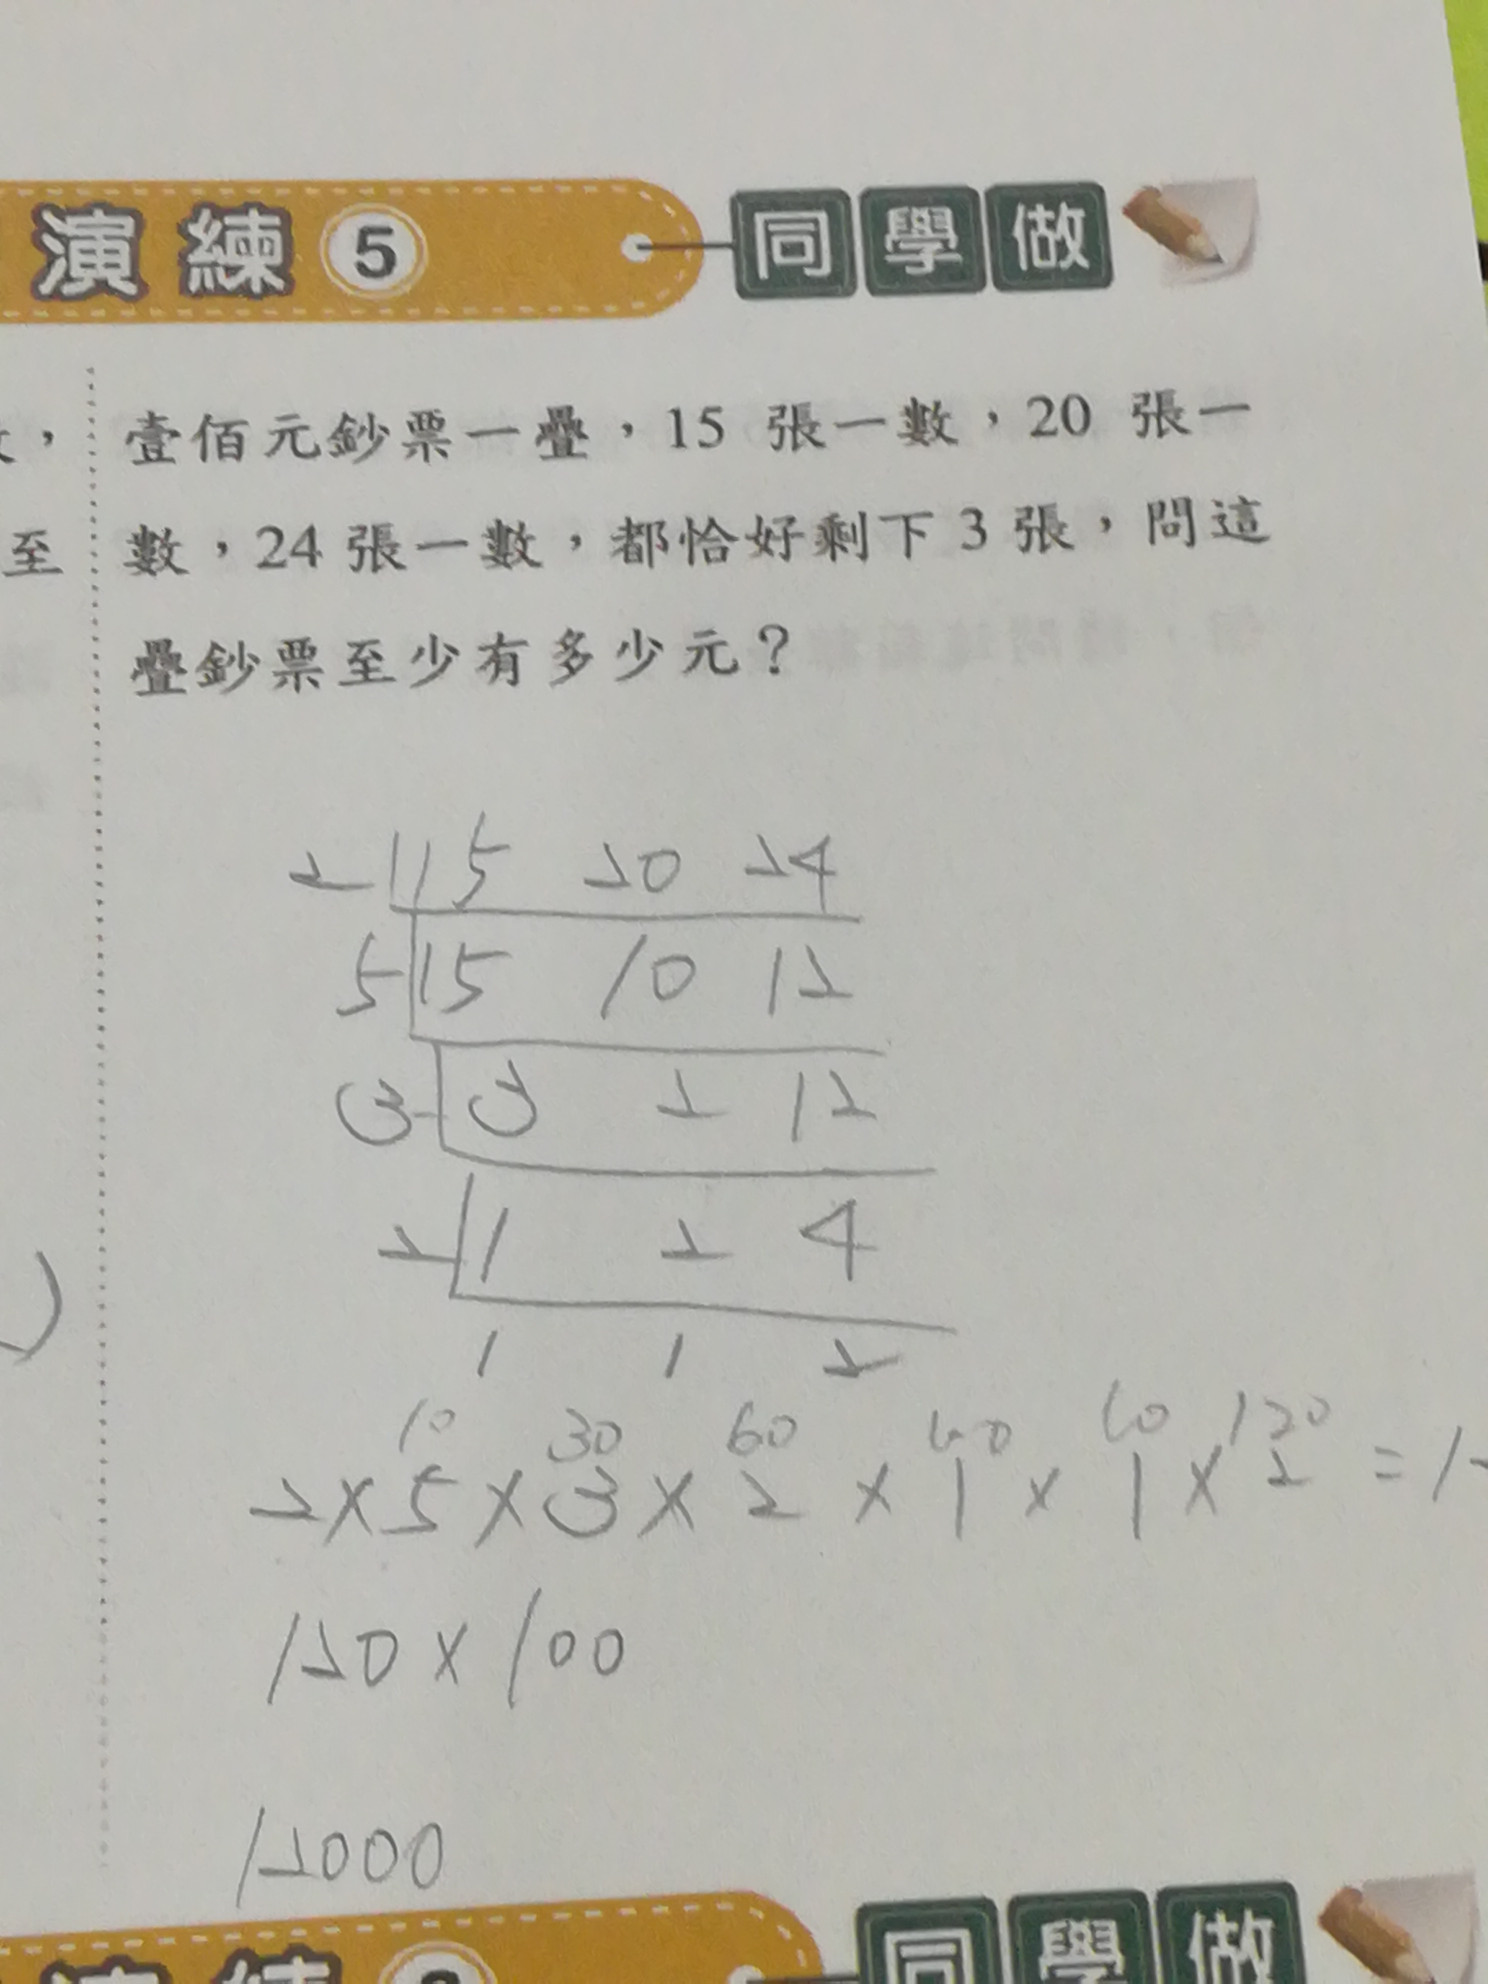 演練5 同學做
壹佰元鈔票一疊，15 張一數，20 張一
數，24 張一數，都恰好剩下 3 張，問這
疊鈔票至少有多少元？
至
2 15 20 24
5 15 10 12
3 3 2 12
2 1 2 4
1 1 2
10 30 60 60 60 120
2×5×3×2×1×1×2=1
120×100
12000
演練
同學做